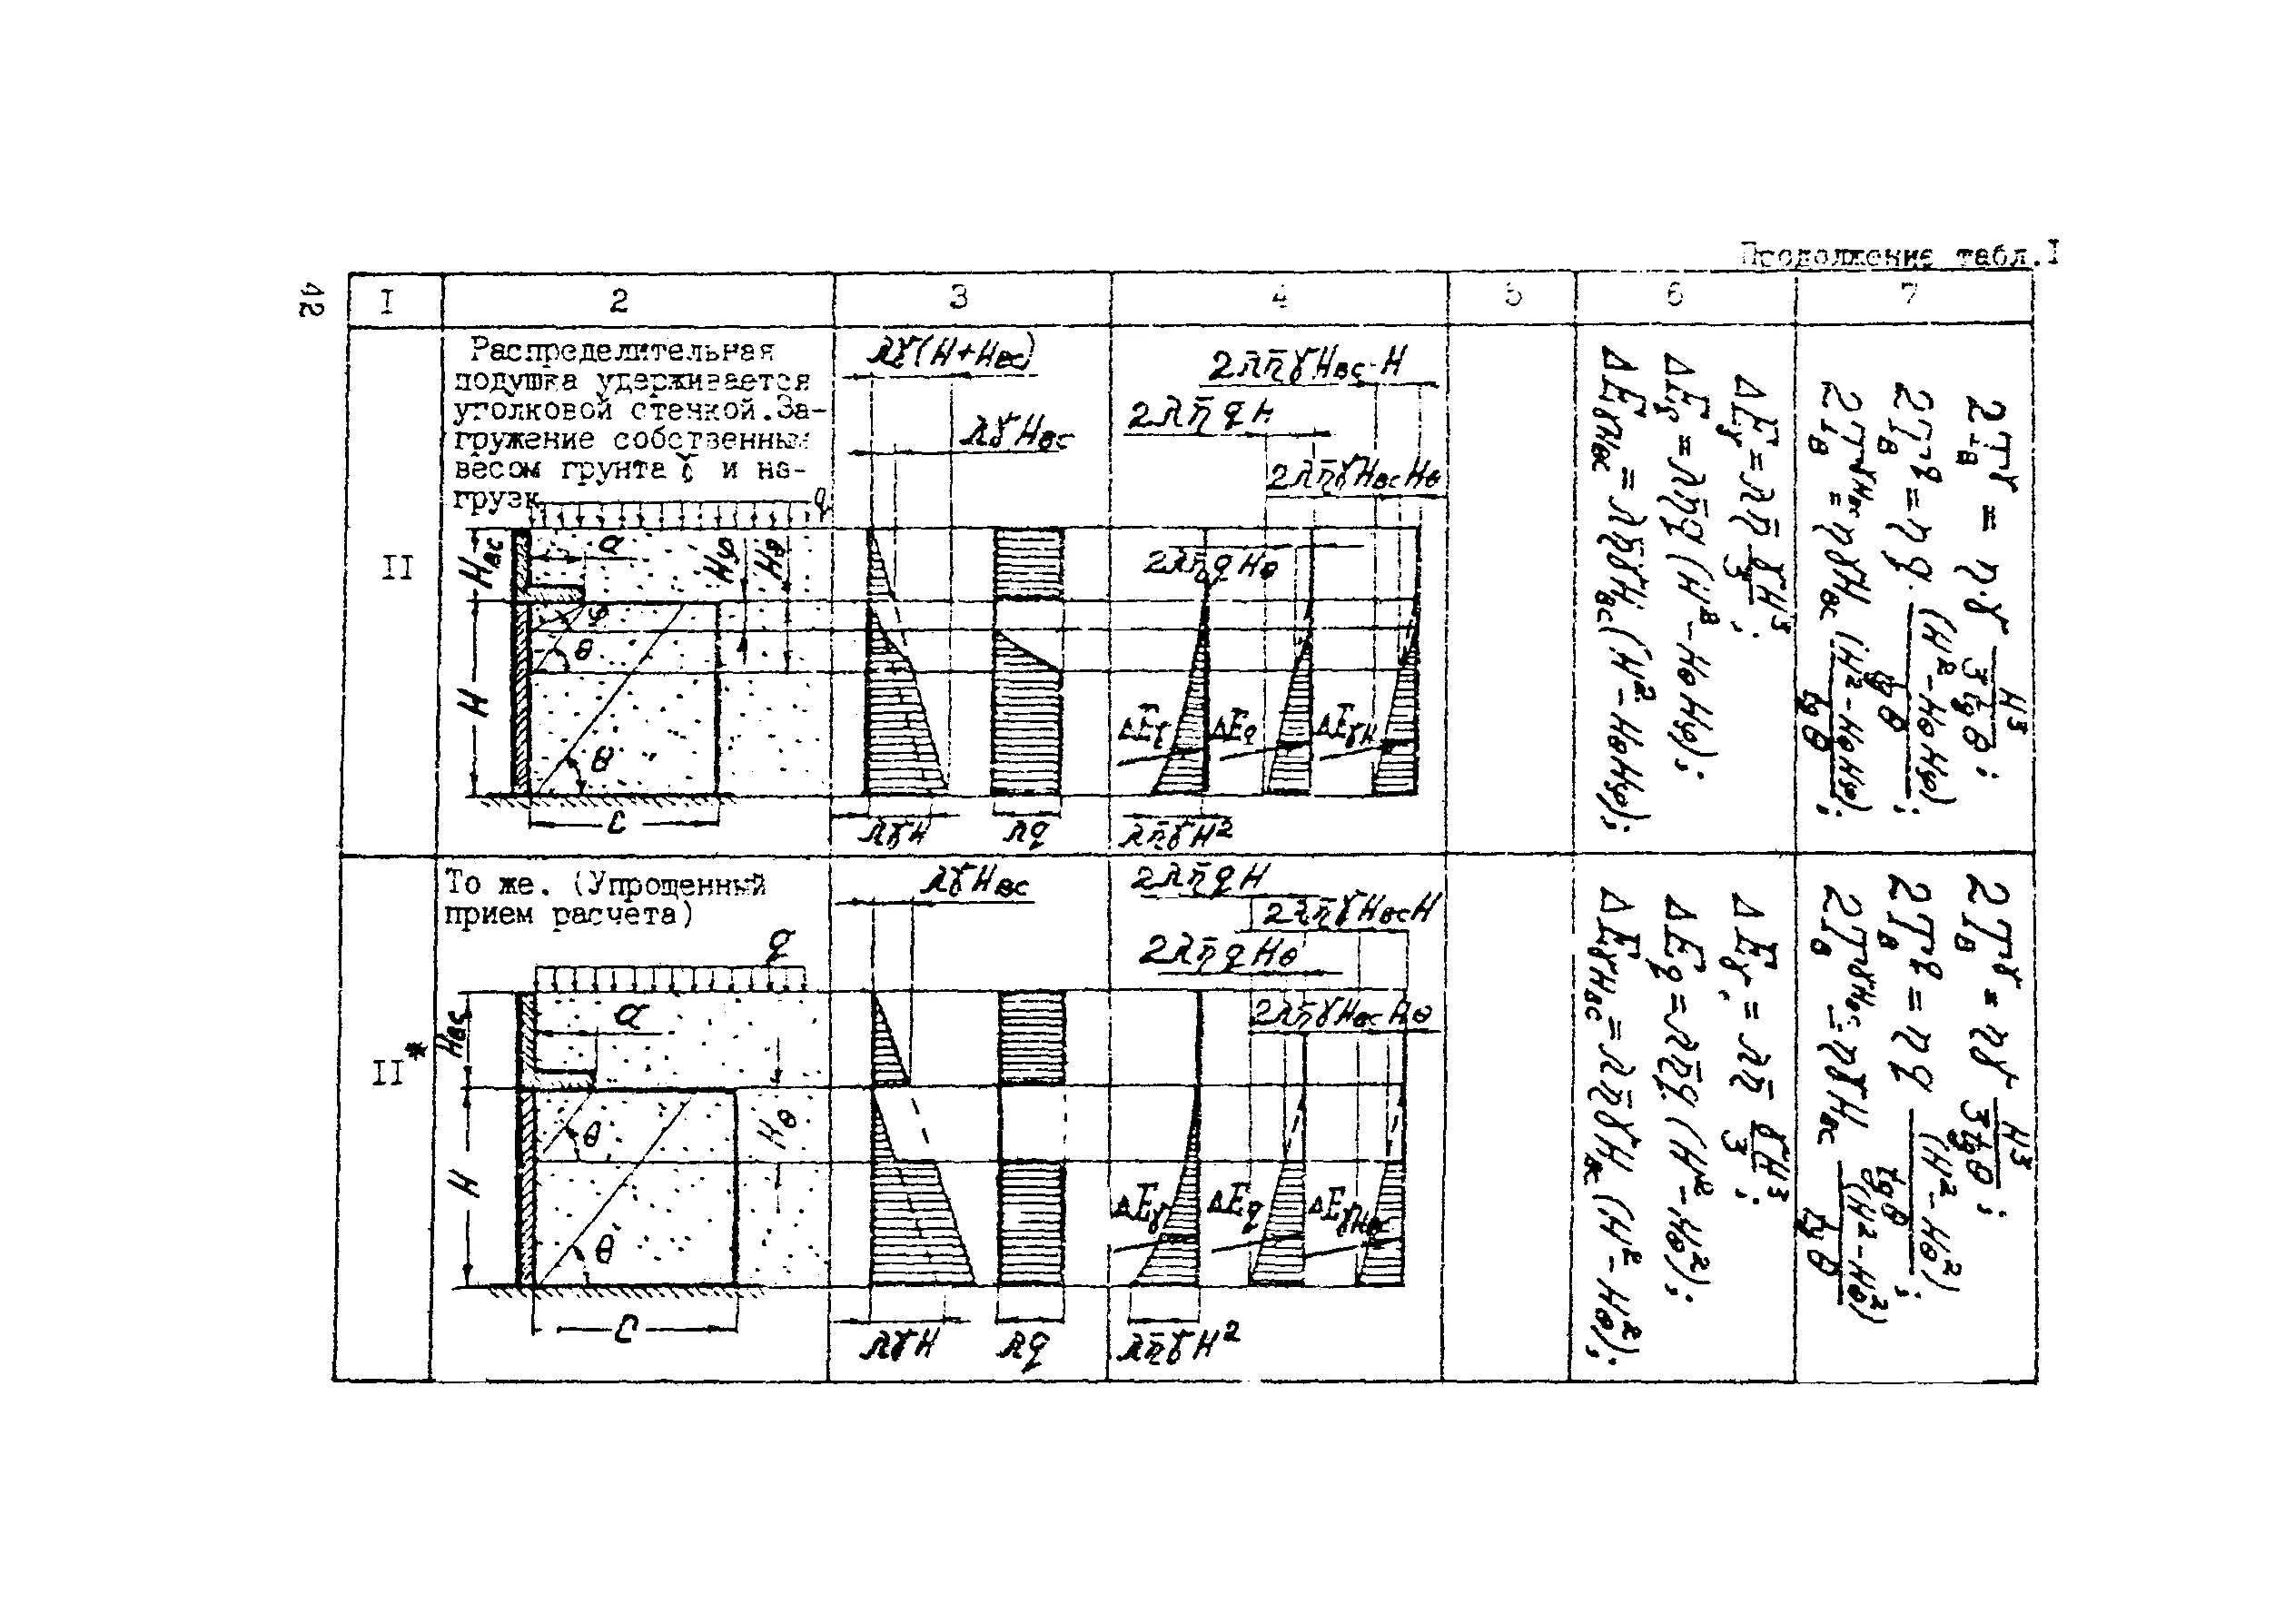 Продолжение табл.I
42
I 2 3 4 5 6 7
II
Распределительная
подушка удерживается
уголковой стенкой.За-
гружение собственным
весом грунта γ и на-
грузк
q
a
Hвс
Hφ
Hθ
φ
θ
H
θ
C
λγ(H+Hвс)
λγHвс
λγH
λq
2λη̄γHвс·H
2λη̄qH
2λη̄γHвсHθ
2λη̄qHθ
ΔEγ
ΔEq
ΔEγH
λη̄γH²
ΔEγ = λη̄ γH³/3;
ΔEq = λη̄q(H²-HθHφ);
ΔEγHвс = λη̄γHвс(H²-HθHφ);
2Tвγ = η·γ H³/3tgθ;
2Tвq = ηq·(H²-HθHφ)/tgθ;
2TвγHвс = ηγHвс (H²-HθHφ)/tgθ;
II*
То же. (Упрощенный
прием расчета)
q
Hвс
a
θ
Hθ
H
θ
C
λγHвс
λγH
λq
2λη̄qH
2λη̄γHвсH
2λη̄qHθ
2λη̄γHвсHθ
ΔEγ
ΔEq
ΔEγHвс
λη̄γH²
ΔEγ = λη̄ γH³/3;
ΔEq = λη̄q(H²-Hθ²);
ΔEγHвс = λη̄γHвс(H²-Hθ²);
2Tвγ = ηγ H³/3tgθ;
2Tвq = ηq (H²-Hθ²)/tgθ;
2TвγHвс = ηγHвс (H²-Hθ²)/tgθ